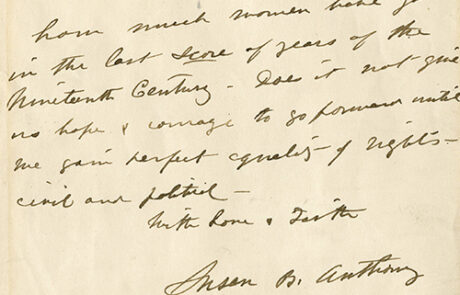 how much women have
in the last score of years of the
Nineteenth Century - Does it not give
us hope & courage to go forward until
we gain perfect equality of rights -
civil and political -
With love & Faith
Susan B. Anthony